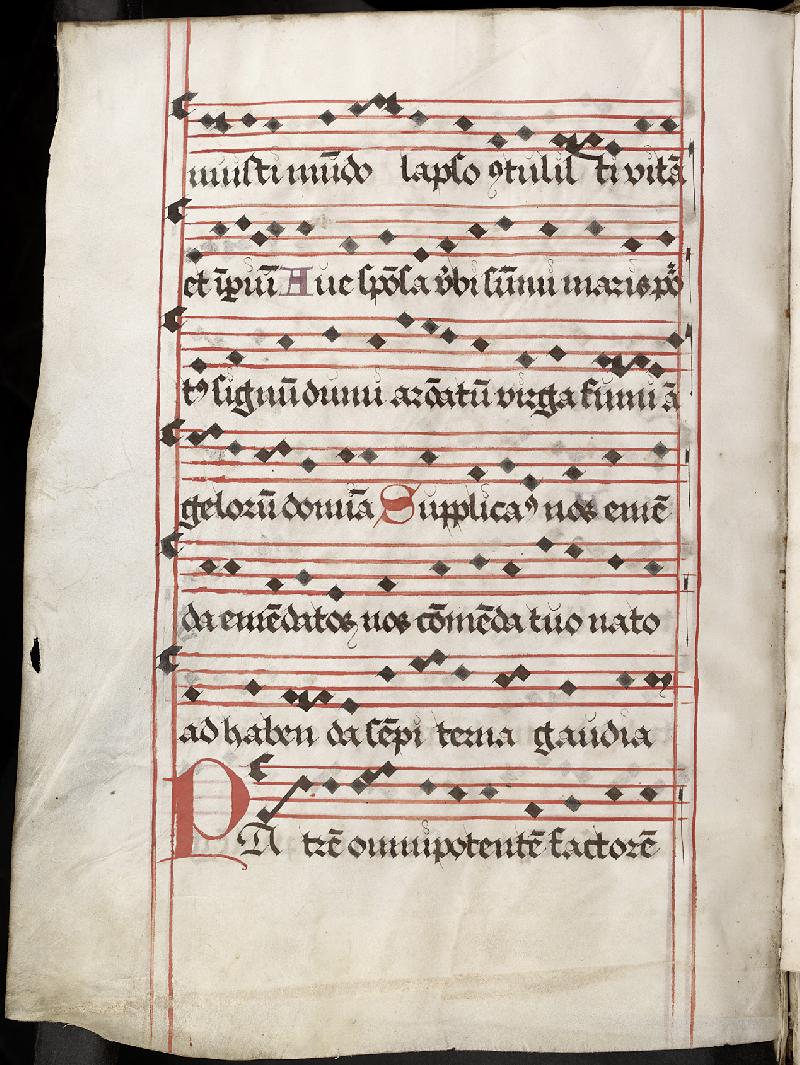 nuisti mūdo lapso ꝯtulisti vitā
et īꝑiuȝ Aue spōsa v̾bi sūmi maris por
tꝰ signū dumi aromatū virga fumi ā
gelorū domīa Supplicamꝰ nos emē
da emēdatos nos cōmēda tuo nato
ad habenda sēpiterna gaudia
PAtrē omnipotentē factorē